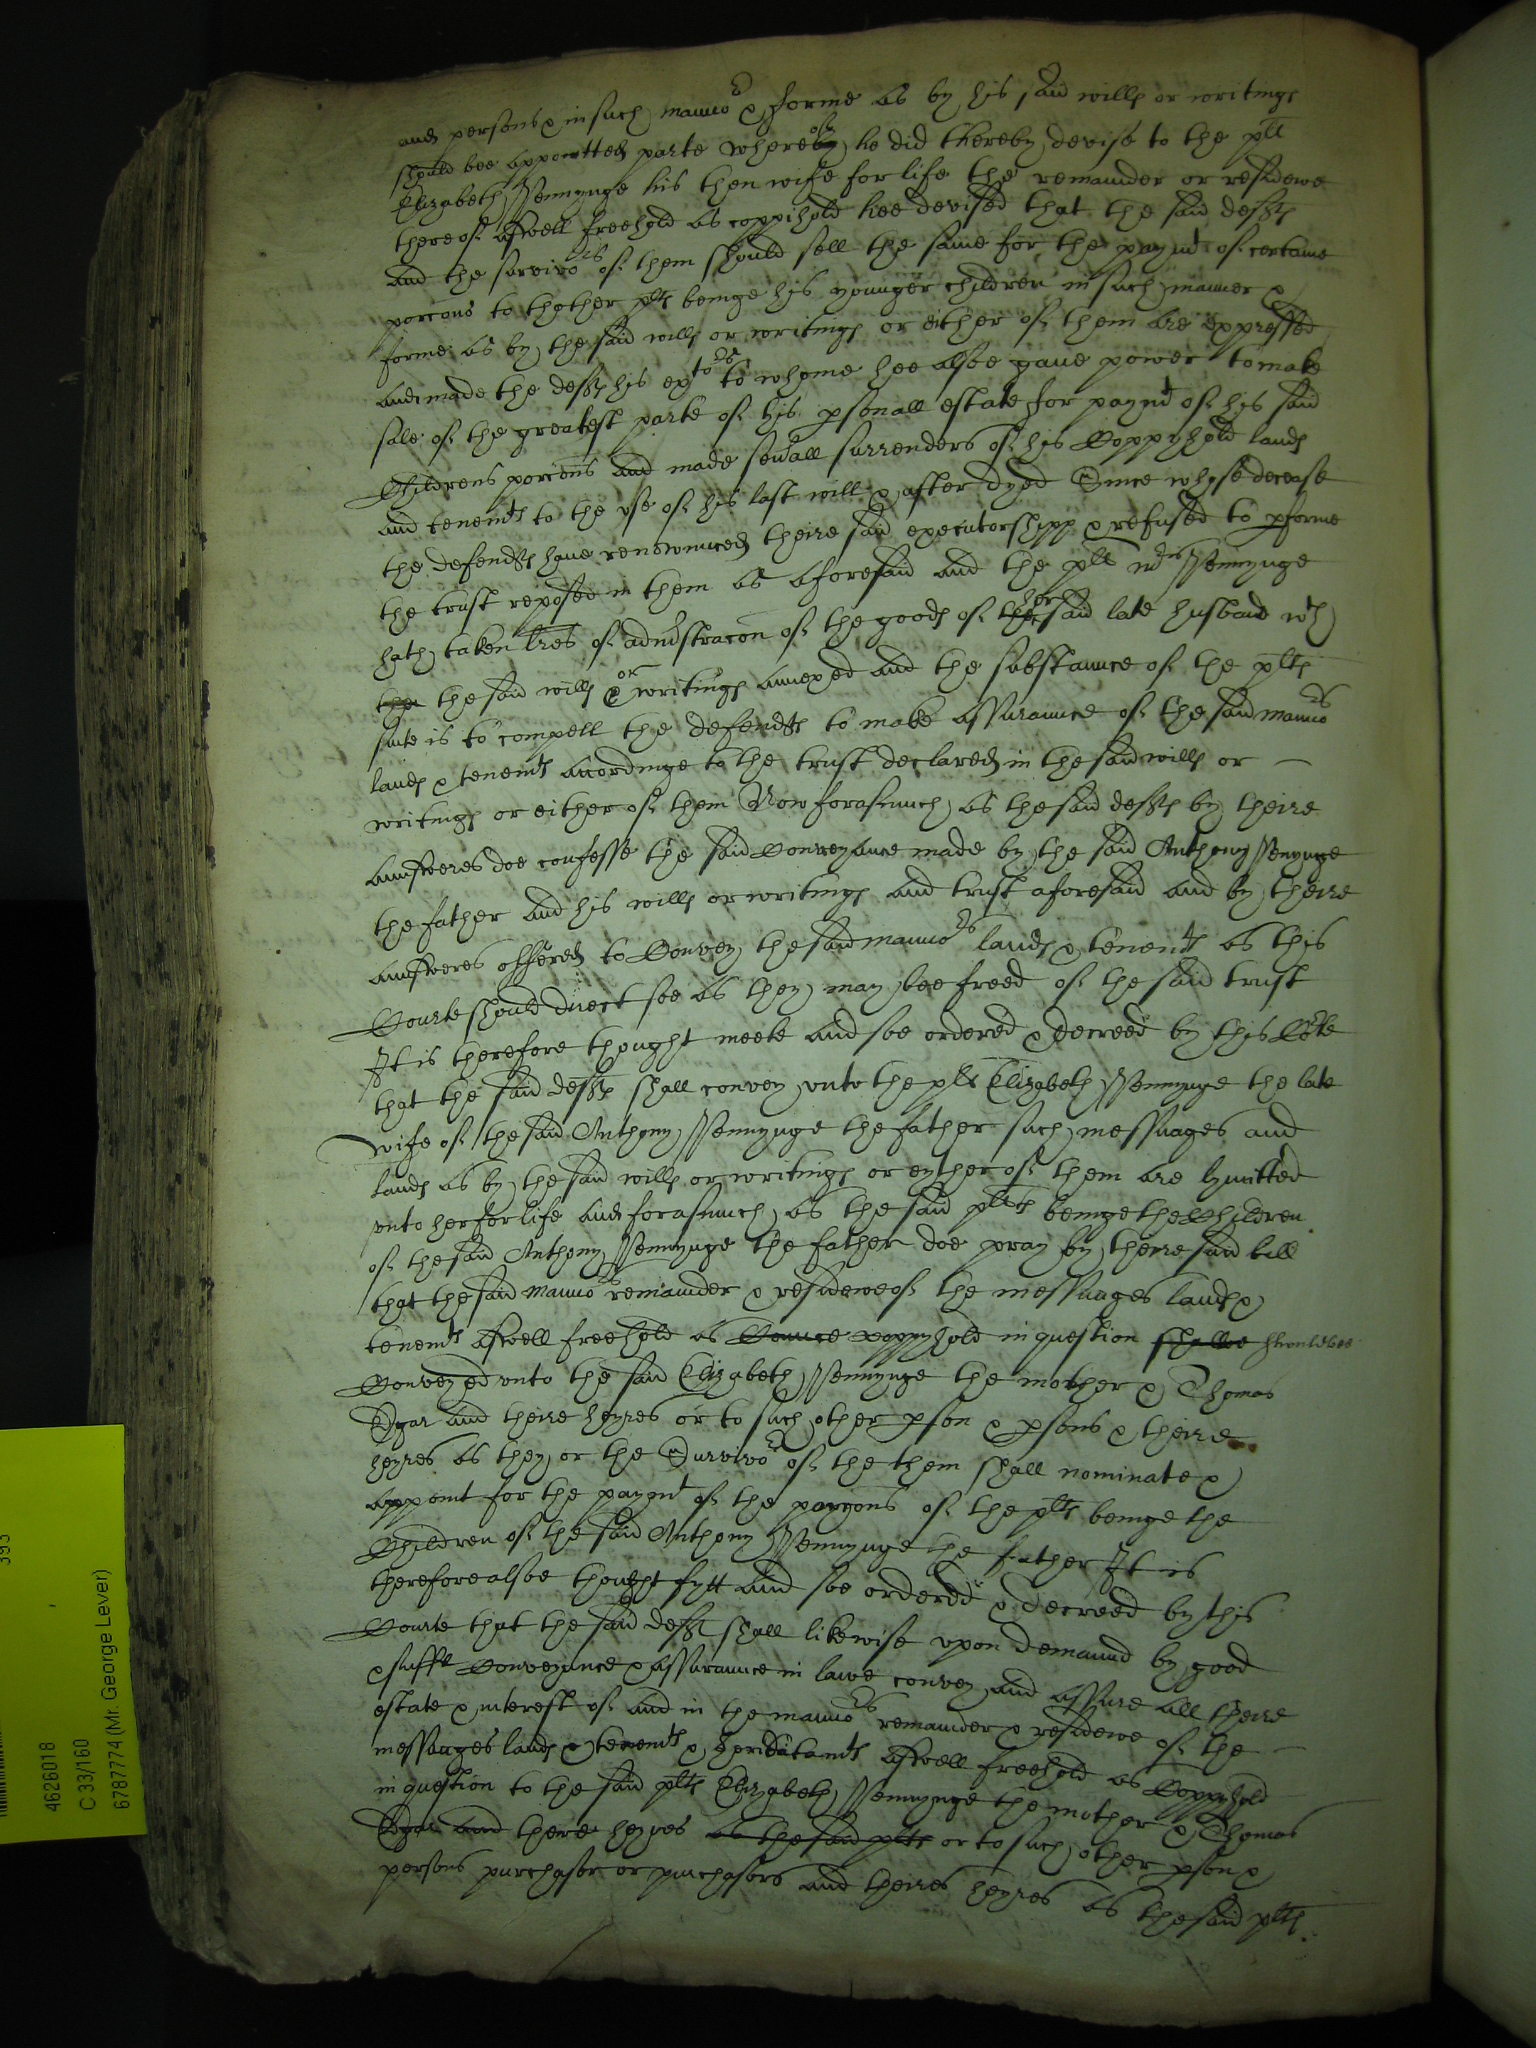 and persons & in such mannor & forme as by his said wills or writings
should bee appointted parte whereof he did thereby devise to the plt
Elizabeth Pennynge his then wife for life the remainder or residewe
thereof aswell freehold as coppihold hee devised that the said deffts
and the survivors of them should sell the same for the paymt of certaine
porcons to thother plts beinge his younger children in such manner &
forme as by the said wills or writings or either of them are expressed
And made the deffts his extors to whome hee alsoe gaue power to make
sale of the greatest parte of his psonall estate for paymt of his said
Childrens porcons and made seuall surrenders of his Coppyhold lands
and tenemts to the vse of his last will & after dyed Since whose decease
the defendts haue renownced theire said executorshipp & refused to pforme
the trust reposed in them as aforesaid and the plt Pennynge
hath taken lres of admstracon of the goods of her said late husband wth
the the said wills or writings annexed and the substaunce of the plts
suite is to compell the defendts to make assuraunce of the said mannors
lands & tenemts accordinge to the trust declared in the said wills or
writings or either of them Now forasmuch as the said deffts by theire
aunsweres doe confesse the said Conveyance made by the said Anthony Penynge
the father and his wills or writings and trust aforesaid and by theire
aunsweres offered to Convey the said mannors lands & tenemts as this
Courte should direct soe as they may bee freed of the said trust
It is therefore thought meete and soe ordered & decreed by this Corte
that the said deffts shall convey vnto the plt Elizabeth Pennynge the late
wife of the said Anthony Pennynge the father such messuages and
lands as by the said wills or writings or eyther of them are lymitted
vnto her for life And forasmuch as the said plts beinge the Children
of the said Anthony Pennynge the father doe pray by theire said bill
that the said mannors remainder & residewe of the messuages lands &
tenemts aswell freehold as Counce coppyhold in question shalbe should bee
Conveyed vnto the said Elizabeth Pennynge the mother & Thomas
Edgar and theire heyres or to such other pson & psons & theire
heyres as they or the Survivor of the them shall nominate &
appoint for the paymt of the porcons of the plts beinge the
Children of the said Anthony Pennynge the father It is
therefore alsoe thought fytt and soe ordered & decreed by this
Courte that the said deffts shall likewise vpon demaund by good
& sufft Conveyance & assuraunce in lawe convey and assure all theire
estate & interest of and in the mannors remainder & residewe of the
messuages lands & tenemts & heriditamts aswell freehold as Coppyhold
in question to the said plts Elizabeth Pennynge the mother & Thomas
Edgar and there heyres as the said plts or to such other pson &
persons purchasor or purchasors and theires heyres as the said plts
393
4626018
C 33/160
6787774 (Mr. George Lever)